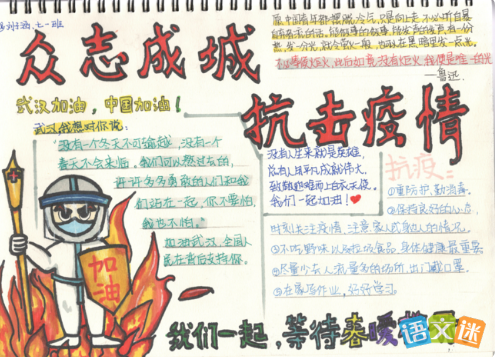 众志成城
抗击疫情
愿中国青年都摆脱冷气，只是向上走，不必听自暴
自弃者流的话。能做事的做事，能发声的发声。有一分
热，发一分光，就令萤火一般，也可以在黑暗里发一点光，
不必等候炬火。此后如竟没有炬火，我便是唯一的光
——鲁迅
武汉加油，中国加油！
武汉，我想对你说：
"没有一个冬天不可逾越，没有一个
春天不会来临。我们可以燃过去的，
许许多多勇敢的人们和我
们站在一起，你不要怕，
我也不怕。"
加油武汉，全国人
民在背后支持你。
没有人生来就是英雄，
总有人用平凡成就伟大，
致敬
我们一起加油！
抗疫：
①重防护，勤消毒。
②保持良好的心态，
时刻关注疫情，注意家人或身边人的情况。
③不吃野味以及垃圾食品，身体健康最重要。
④尽量少去人流量多的场所，出门戴口罩。
⑤在家写作业，好好学习。
加油
我们一起，等待春暖
语文迷